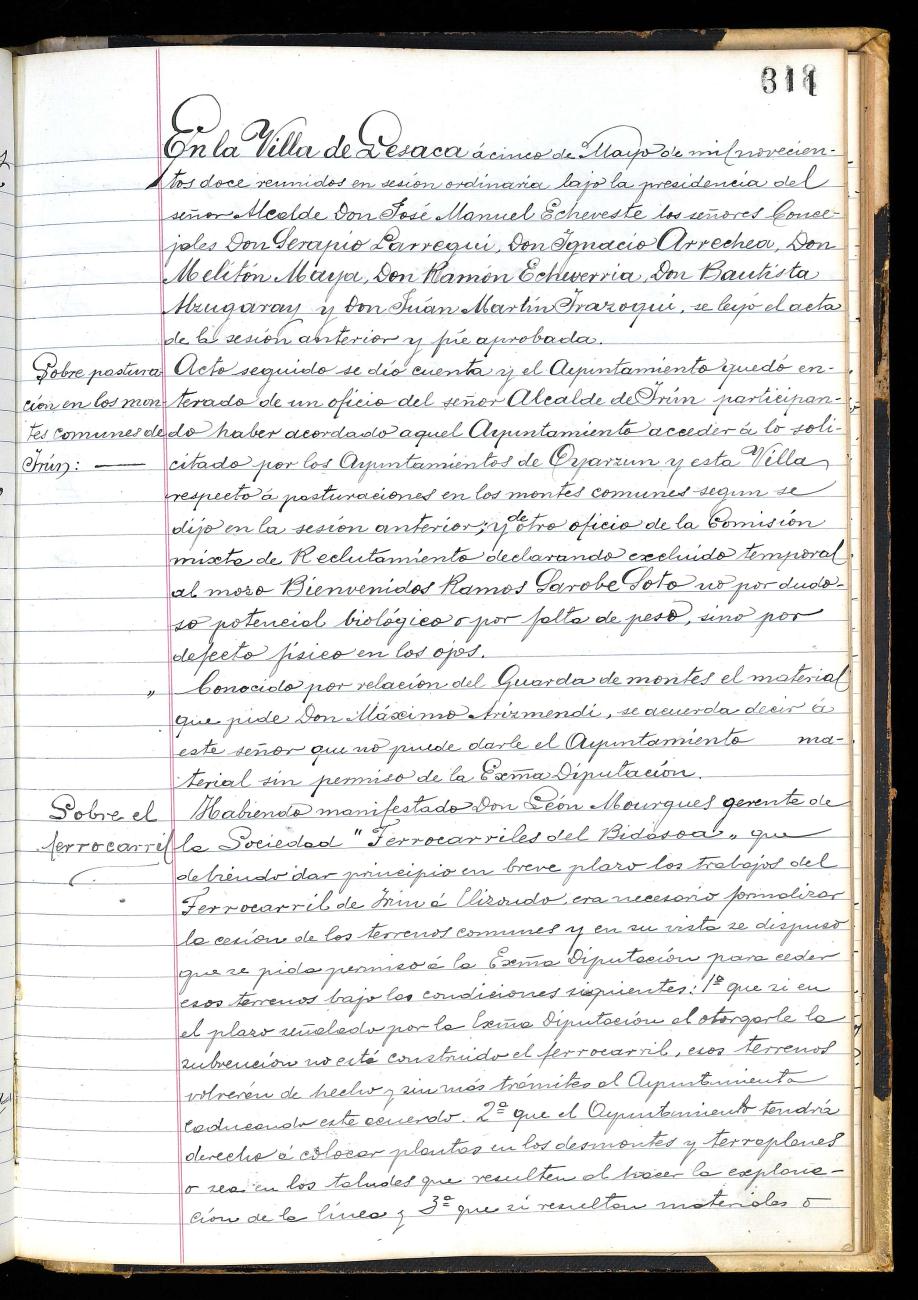 311
En la Villa de Lesaca á cinco de Mayo de mil novecien-
tos doce reunidos en sesión ordinaria bajo la presidencia del
señor Alcalde Don José Manuel Echeveste los señores Conce-
jales Don Serapio Larregui, Don Ignacio Arrechea, Don
Melitón Maya, Don Ramón Echeverria, Don Bautista
Alzugaray y Don Juán Martín Irazoqui, se leyó el acta
de la sesión anterior y fué aprobada.
Sobre pastura
ción en los mon-
tes comunes de
Irún: —
Acto seguido se dió cuenta y el Ayuntamiento quedó en-
terado de un oficio del señor Alcalde de Irún participan-
do haber acordado aquel Ayuntamiento acceder á lo soli-
citado por los Ayuntamientos de Oyarzun y esta Villa
respecto á pasturaciones en los montes comunes segun se
dijo en la sesión anterior; y de otro oficio de la Comisión
mixta de Reclutamiento declarando excluido temporal
al mozo Bienvenidos Ramos Sarobe Soto no por dudo-
so potencial biológico o por falta de peso, sino por
defecto físico en los ojos.
" Conocido por relación del Guarda de montes el material
que pide Don Máximo Arizmendi, se acuerda decir á
este señor que no puede darle el Ayuntamiento ma-
terial sin permiso de la Exma Diputación.
Sobre el
ferrocarril
Habiendo manifestado Don León Mourgues gerente de
la Sociedad "Ferrocarriles del Bidasoa" que
debiendo dar principio en breve plazo los trabajos del
Ferrocarril de Irún á Elizondo, era necesario formalizar
la cesión de los terrenos comunes y en su vista se dispuso
que se pida permiso á la Exma Diputación para ceder
esos terrenos bajo las condiciones siguientes: 1ª que si en
el plazo señalado por la Exma Diputación al otorgarle la
subvención no está construido el ferrocarril, esos terrenos
volverán de hecho y sin más trámites al Ayuntamiento
caducando este acuerdo. 2ª que el Ayuntamiento tendría
derecho á colocar plantas en los desmontes y terraplenes
o sea en los taludes que resulten al hacer la explana-
ción de la línea y 3ª que si resultan materiales o